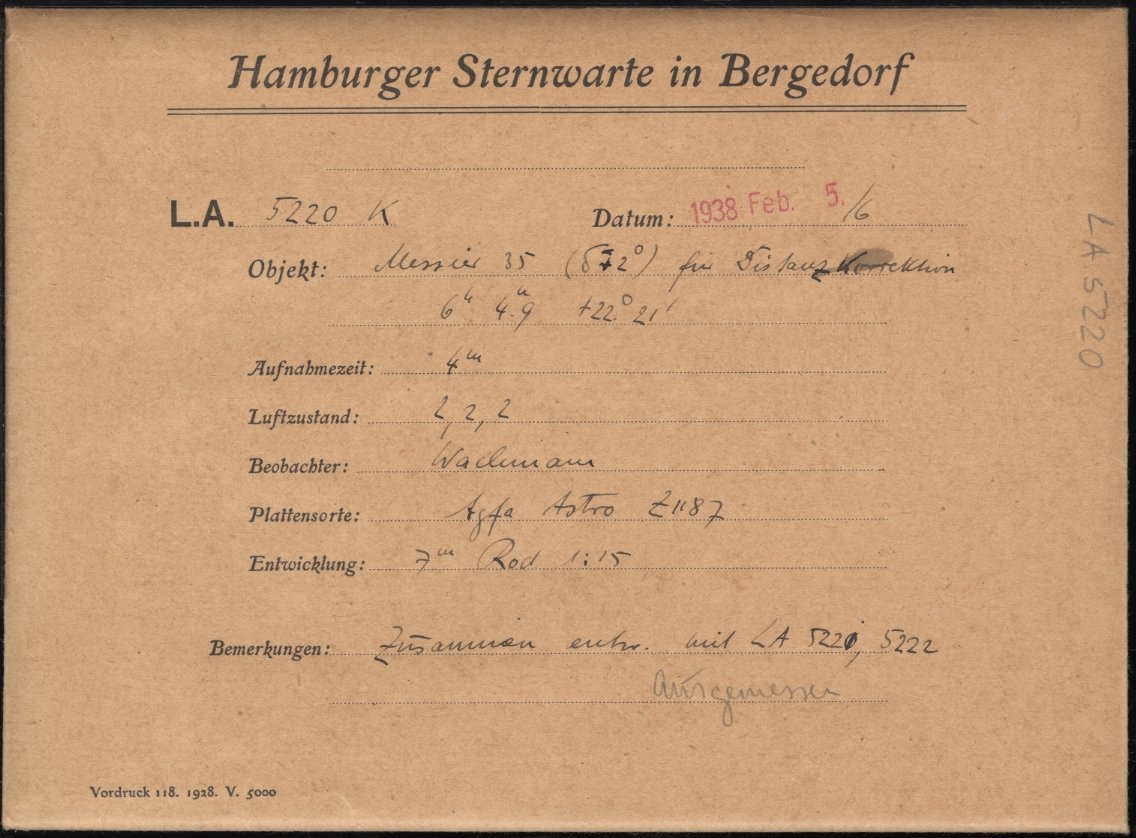 Hamburger Sternwarte in Bergedorf
L.A. 5220 K Datum: 1938 Feb. 5./6
Objekt: Messier 35 (δ+2°) für Distanzkorrektion
6ʰ 4.ᵐ9 +22° 21'
Aufnahmezeit: 4ᵐ
Luftzustand: 2, 2, 2
Beobachter: Wachmann
Plattensorte: Agfa Astro Z1187
Entwicklung: 7ᵐ Rod 1:15
Bemerkungen: Zusammen entw. mit LA 5221, 5222
Ausgemessen
Vordruck 118. 1928. V. 5000
LA 5220